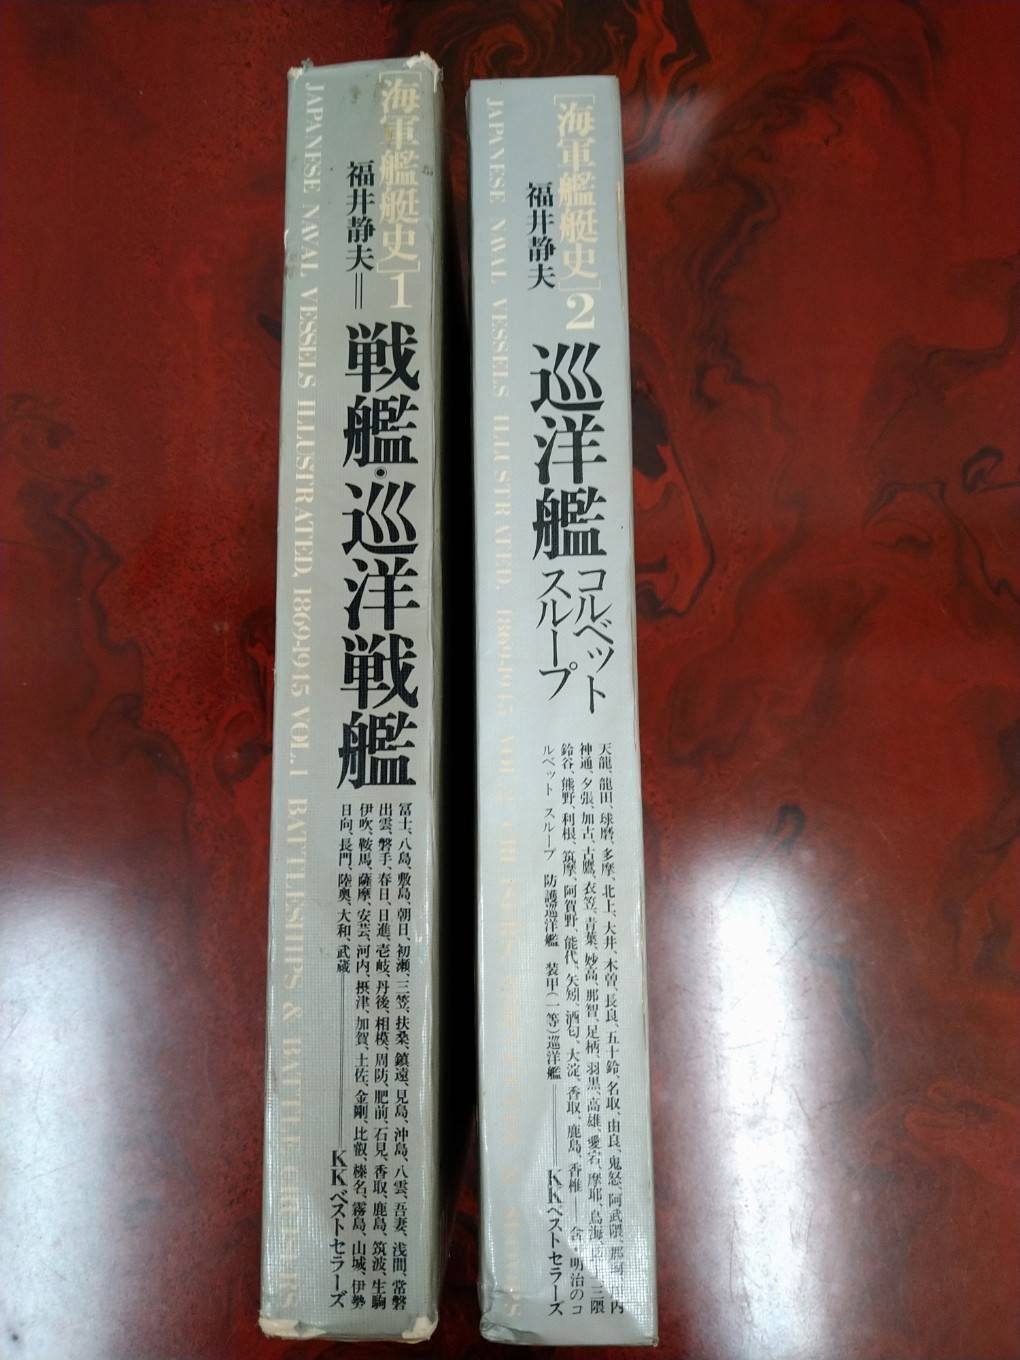 [海軍艦艇史]1
福井静夫＝
戦艦・巡洋戦艦
冨士、八島、敷島、朝日、初瀬、三笠、扶桑、鎮遠、見島、沖島、八雲、吾妻、浅間、常磐
出雲、磐手、春日、日進、壱岐、丹後、相模、周防、肥前、石見、香取、鹿島、筑波、生駒
伊吹、鞍馬、薩摩、安芸、河内、摂津、加賀、土佐、金剛、比叡、榛名、霧島、山城、伊勢
日向、長門、陸奥、大和、武蔵
KKベストセラーズ
JAPANESE NAVAL VESSELS ILLUSTRATED, 1869-1945 VOL. 1 BATTLESHIPS & BATTLE-CRUISERS
[海軍艦艇史]2
福井静夫
巡洋艦
コルベット
スループ
天龍、龍田、球磨、多摩、北上、大井、木曽、長良、五十鈴、名取、由良、鬼怒、阿武隈、那珂、川内
神通、夕張、加古、古鷹、衣笠、青葉、妙高、那智、足柄、羽黒、高雄、愛宕、摩耶、鳥海、最上、三隈
鈴谷、熊野、利根、筑摩、阿賀野、能代、矢矧、酒匂、大淀、香取、鹿島、香椎──含・明治のコ
ルベット スループ 防護巡洋艦 装甲(一等)巡洋艦
KKベストセラーズ
JAPANESE NAVAL VESSELS ILLUSTRATED, 1869-1945 VOL. 2 CRUISERS